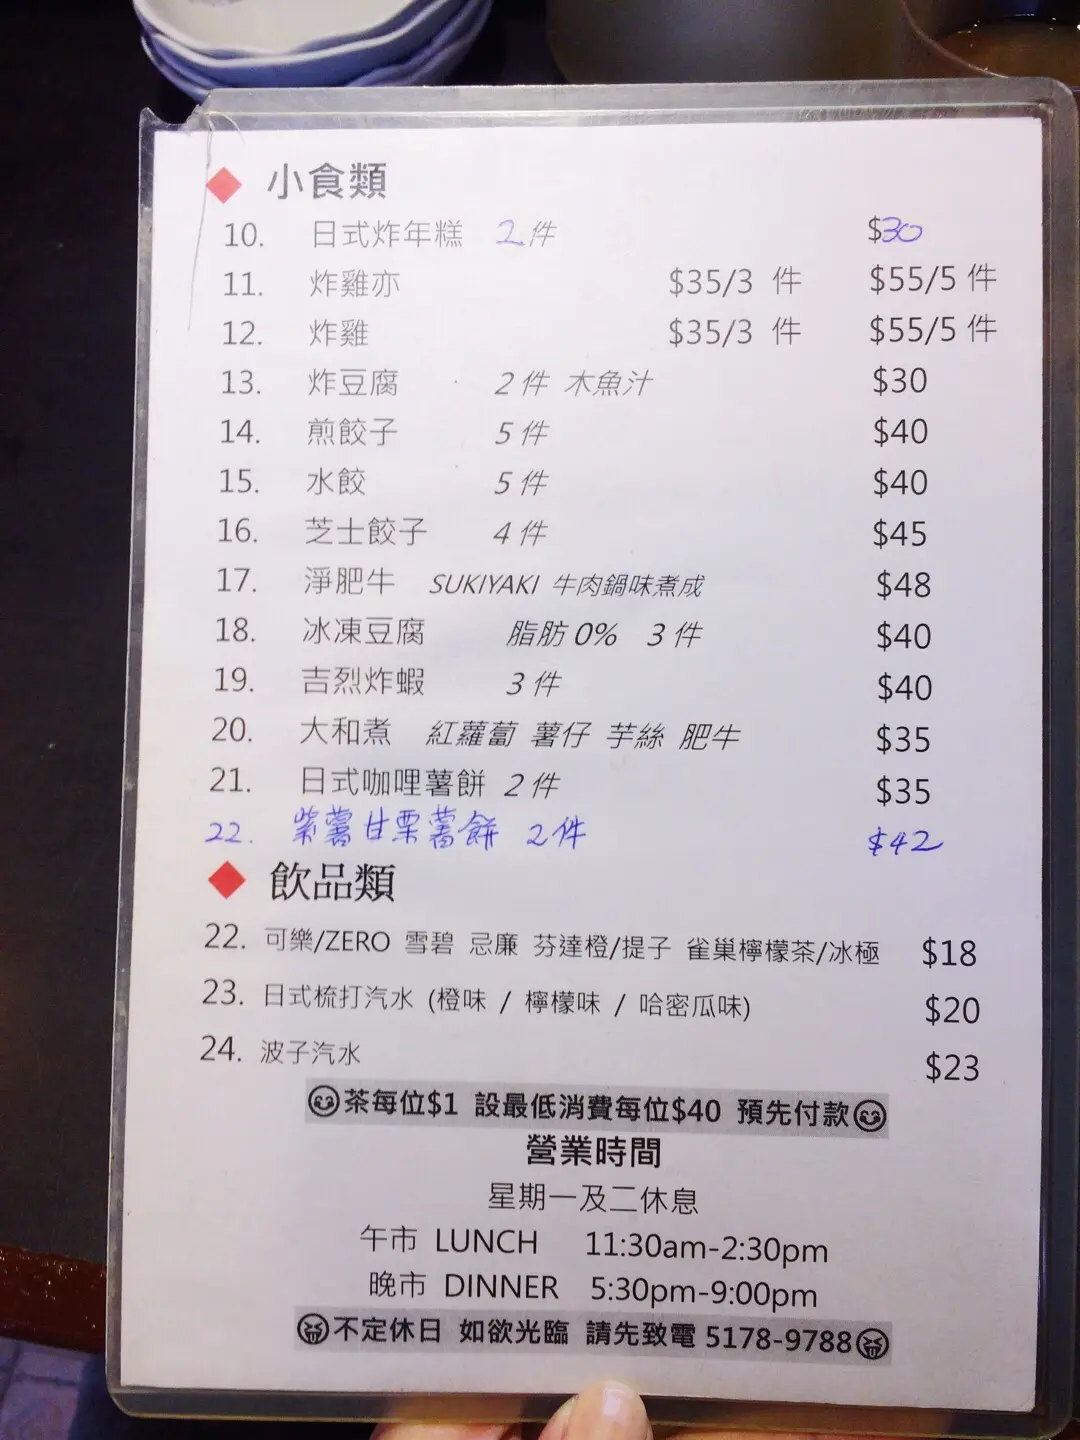 ◆ 小食類
10. 日式炸年糕 2件 $30
11. 炸雞亦 $35/3 件 $55/5 件
12. 炸雞 $35/3 件 $55/5 件
13. 炸豆腐 2件 木魚汁 $30
14. 煎餃子 5件 $40
15. 水餃 5件 $40
16. 芝士餃子 4件 $45
17. 淨肥牛 SUKIYAKI 牛肉鍋味煮成 $48
18. 冰凍豆腐 脂肪0% 3件 $40
19. 吉烈炸蝦 3件 $40
20. 大和煮 紅蘿蔔 薯仔 芋絲 肥牛 $35
21. 日式咖哩薯餅 2件 $35
22. 紫薯甘栗薯餅 2件 $42
◆ 飲品類
22. 可樂/ZERO 雪碧 忌廉 芬達橙/提子 雀巢檸檬茶/冰極 $18
23. 日式梳打汽水 (橙味 / 檸檬味 / 哈密瓜味) $20
24. 波子汽水 $23
茶每位$1 設最低消費每位$40 預先付款
營業時間
星期一及二休息
午市 LUNCH 11:30am-2:30pm
晚市 DINNER 5:30pm-9:00pm
不定休日 如欲光臨 請先致電 5178-9788